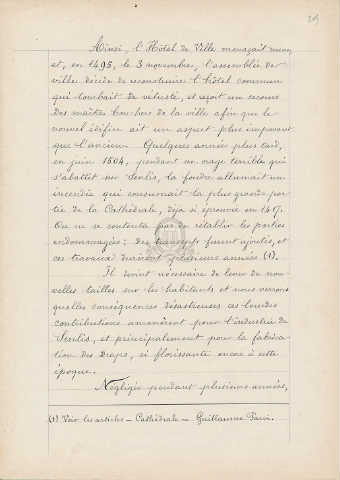 29
Ainsi, l'Hôtel de Ville menaçait ruine,
et, en 1495, le 3 novembre, l'assemblée de
ville décide de reconstruire l'hôtel commun
qui tombait de vétusté, et reçoit un secours
des maîtres bouchers de la ville afin que le
nouvel édifice ait un aspect plus imposant
que l'ancien. Quelques années plus tard,
en juin 1504, pendant un orage terrible qui
s'abattit sur Senlis, la foudre allumait un
incendie qui consumait la plus grande par-
tie de la Cathédrale, déjà si éprouvée en 1417.
On ne se contenta pas de rétablir les parties
endommagées; des transept furent ajoutés, et
ces travaux durèrent plusieurs années (1).
Il devint nécessaire de lever de nou-
velles tailles sur les habitants et nous verrons
quelles conséquences désastreuses ces lourdes
contributions amenèrent pour l'industrie de
Senlis, et principalement pour la fabrica-
tion des Draps, si florissante encore à cette
époque.
Négligée pendant plusieurs années,
(1) Voir les articles — Cathédrale — Guillaume Parvi.